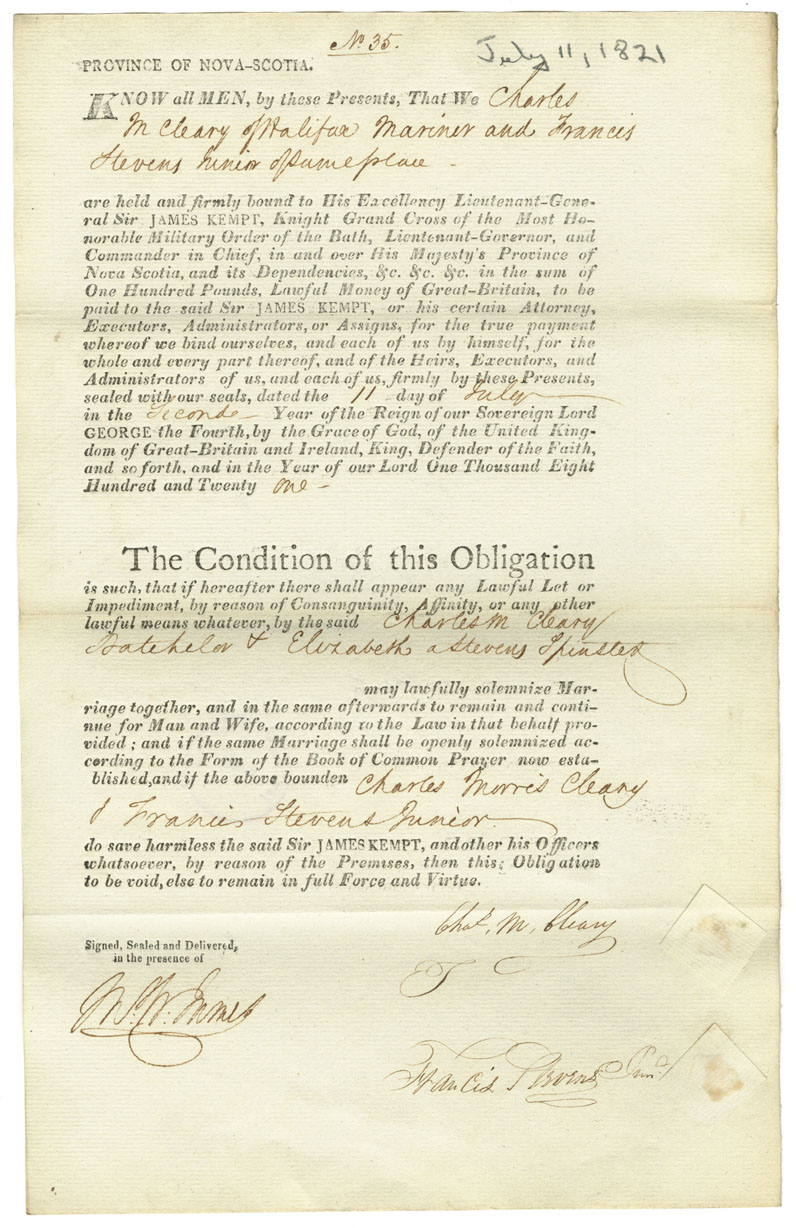 No. 35.
July 11, 1821
PROVINCE OF NOVA-SCOTIA.
KNOW all MEN, by these Presents, That We Charles
M Cleary of Halifax Mariner and Francis
Stevens Junior of same place -
are held and firmly bound to His Excellency Lieutenant-Gene-
ral Sir JAMES KEMPT, Knight Grand Cross of the Most Ho-
norable Military Order of the Bath, Lieutenant-Governor, and
Commander in Chief, in and over His Majesty's Province of
Nova Scotia, and its Dependencies, &c. &c. &c. in the sum of
One Hundred Pounds, Lawful Money of Great-Britain, to be
paid to the said Sir JAMES KEMPT, or his certain Attorney,
Executors, Administrators, or Assigns, for the true payment
whereof we bind ourselves, and each of us by himself, for the
whole and every part thereof, and of the Heirs, Executors, and
Administrators of us, and each of us, firmly by these Presents,
sealed with our seals, dated the 11 day of July
in the Seconde Year of the Reign of our Sovereign Lord
GEORGE the Fourth, by the Grace of God, of the United King-
dom of Great-Britain and Ireland, King, Defender of the Faith,
and so forth, and in the Year of our Lord One Thousand Eight
Hundred and Twenty one -
The Condition of this Obligation
is such, that if hereafter there shall appear any Lawful Let or
Impediment, by reason of Consanguinity, Affinity, or any other
lawful means whatever, by the said Charles M Cleary
Batchelor & Elizabeth a Stevens Spinster
may lawfully solemnize Mar-
riage together, and in the same afterwards to remain and conti-
nue for Man and Wife, according to the Law in that behalf pro-
vided; and if the same Marriage shall be openly solemnized ac-
cording to the Form of the Book of Common Prayer now esta-
blished, and if the above bounden Charles Morris Cleary
& Francis Stevens Junior
do save harmless the said Sir JAMES KEMPT, and other his Officers
whatsoever, by reason of the Premises, then this Obligation
to be void, else to remain in full Force and Virtue.
Chas. M. Cleary
Signed, Sealed and Delivered,
in the presence of
Francis Stevens Junr.